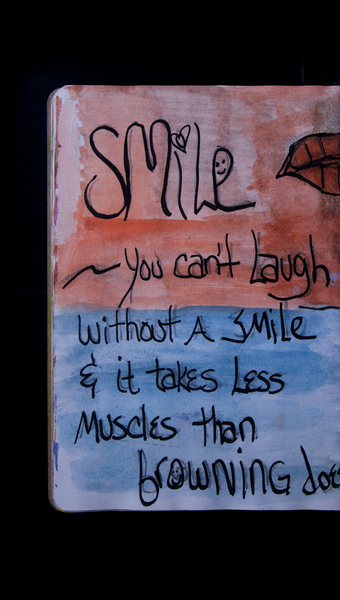 SMiLe
~ you can't Laugh
without A SMiLe
& it takes Less
Muscles than
frowning does